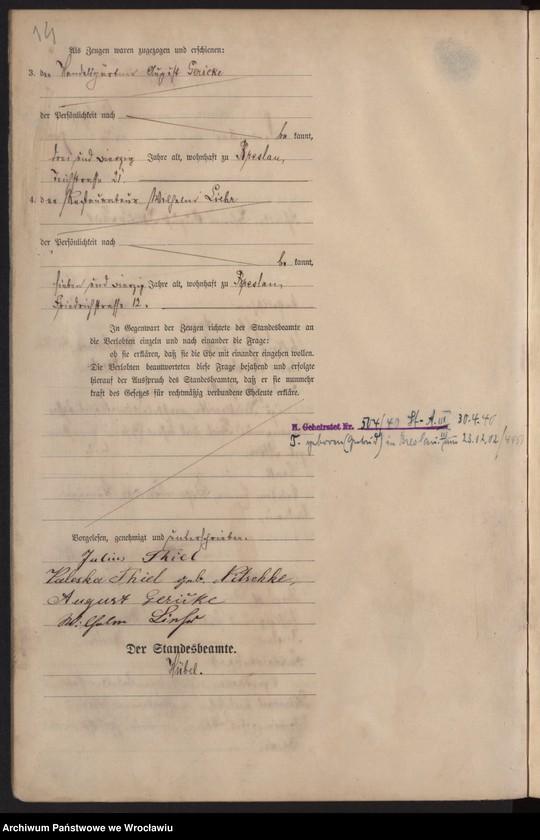 14
Als Zeugen waren zugezogen und erschienen:
3. der Handelsgärtner August Gericke
der Persönlichkeit nach
be kannt,
drei und vierzig Jahre alt, wohnhaft zu Breslau,
Teichstrasse 21
4. der Restaurateur Wilhelm Liehr
der Persönlichkeit nach
be kannt,
sieben und vierzig Jahre alt, wohnhaft zu Breslau,
Friedrichstrasse 12.
In Gegenwart der Zeugen richtete der Standesbeamte an
die Verlobten einzeln und nach einander die Frage:
ob sie erklären, daß sie die Ehe mit einander eingehen wollen.
Die Verlobten beantworteten diese Frage bejahend und erfolgte
hierauf der Ausspruch des Standesbeamten, daß er sie nunmehr
kraft des Gesetzes für rechtmäßig verbundene Eheleute erkläre.
K. Geheiratet Nr. 504/40 St-A. III 30.4.40
T. geboren in Breslau 23.12.02
Vorgelesen, genehmigt und unterschrieben.
Julius Thiel
Valeska Thiel geb. Nitschke,
August Gericke
Wilhelm Liehr
Der Standesbeamte.
Hübel.
Archiwum Państwowe we Wrocławiu